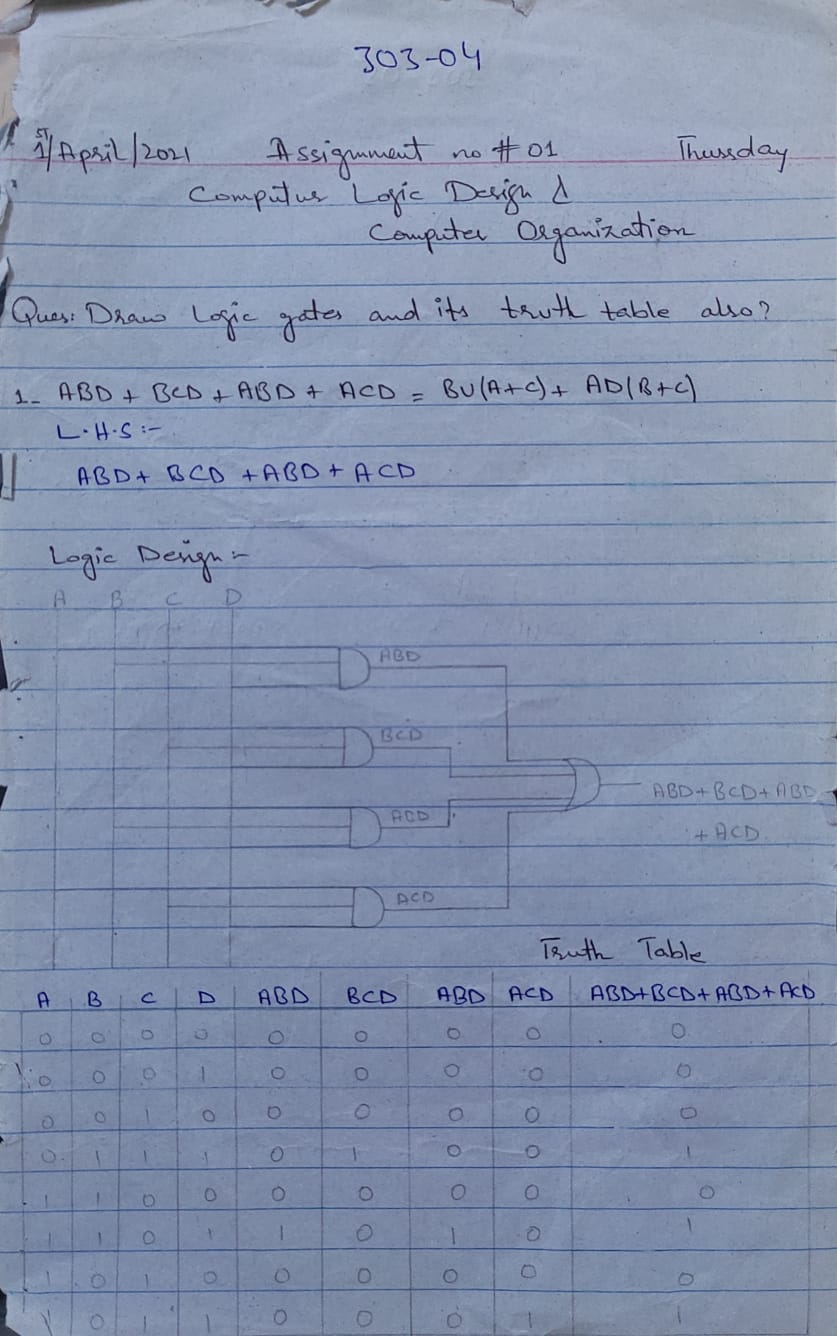 303-04
1ST/April/2021 Assignment no # 01 Thursday
Computer Logic Design &
Computer Organization
Ques: Draw Logic gates and its truth table also?
1- ABD + BCD + ABD + ACD = BU(A+C) + AD(B+C)
L.H.S :-
ABD + BCD + ABD + ACD
Logic Design :-
A B C D
ABD
BCD
ACD
ACD
ABD+BCD+ABD
+ACD
Truth Table
A B C D ABD BCD ABD ACD ABD+BCD+ABD+ACD
0 0 0 0 0 0 0 0 0
0 0 0 1 0 0 0 0 0
0 0 1 0 0 0 0 0 0
0 1 1 1 0 1 0 0 1
1 1 0 0 0 0 0 0 0
1 1 0 1 1 0 1 0 1
1 0 1 0 0 0 0 0 0
1 0 1 1 0 0 0 1 1